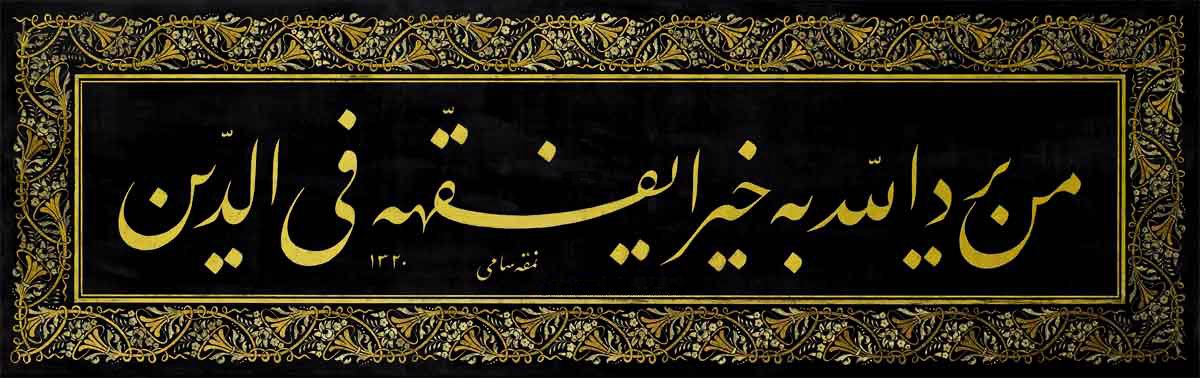 من يرد الله به خيرا يفقّهه فى الدّين
نمقه سامى
١٣٢٠